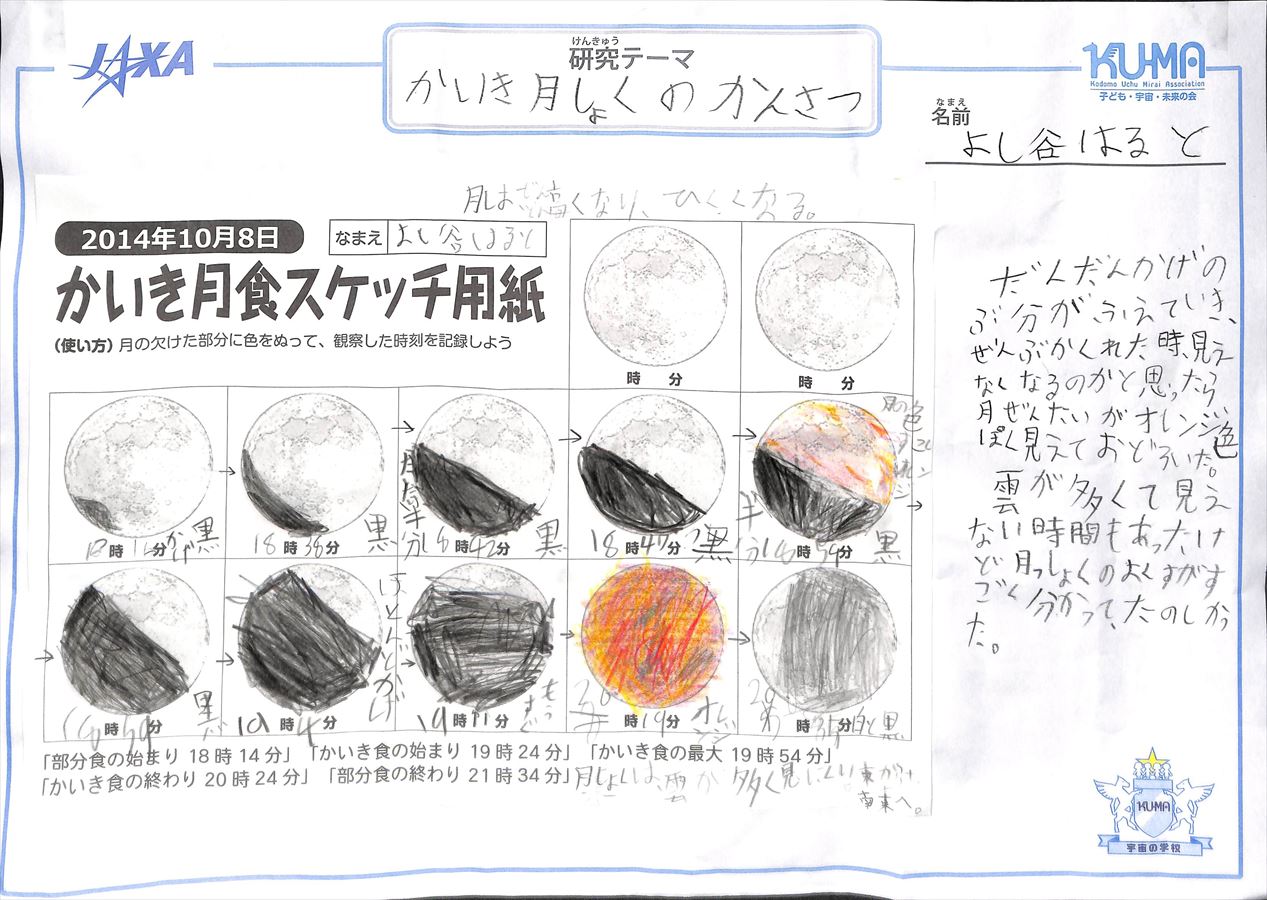 JAXA
けんきゅう
研究テーマ
かいき月しょくのかんさつ
KU-MA
Kodomo Uchu Mirai Association
子ども・宇宙・未来の会
なまえ
名前
よし谷はると
高くなり、ひくくなる。
2014年10月8日
なまえ よし谷はると
かいき月食スケッチ用紙
(使い方)月の欠けた部分に色をぬって、観察した時刻を記録しよう
時 分
時 分
18時 分 かげ黒
18時38分 黒
月たち半分 18時42分 黒
18時47分 黒
月の色
半分 18時54分 黒
18時59分 黒
19時4分 ほとんどかげ
19時11分 もうすぐ
20時19分 オレンジ
20時35分 白と黒
「部分食の始まり 18時14分」「かいき食の始まり 19時24分」「かいき食の最大 19時54分」
「かいき食の終わり 20時24分」「部分食の終わり 21時34分」
月しょくは、雲が多く見にくい。東がけ
南東へ。
だんだんかげの
ぶ分がふえていき、
ぜんぶかくれた時、見え
なくなるのかと思ったら
月ぜんたいがオレンジ色
ぽく見えておどろいた。
雲が多くて見え
ない時間もあったけ
ど月っしょくのよくすがす
ごく分かって、たのしかっ
た。
KUMA
宇宙の学校